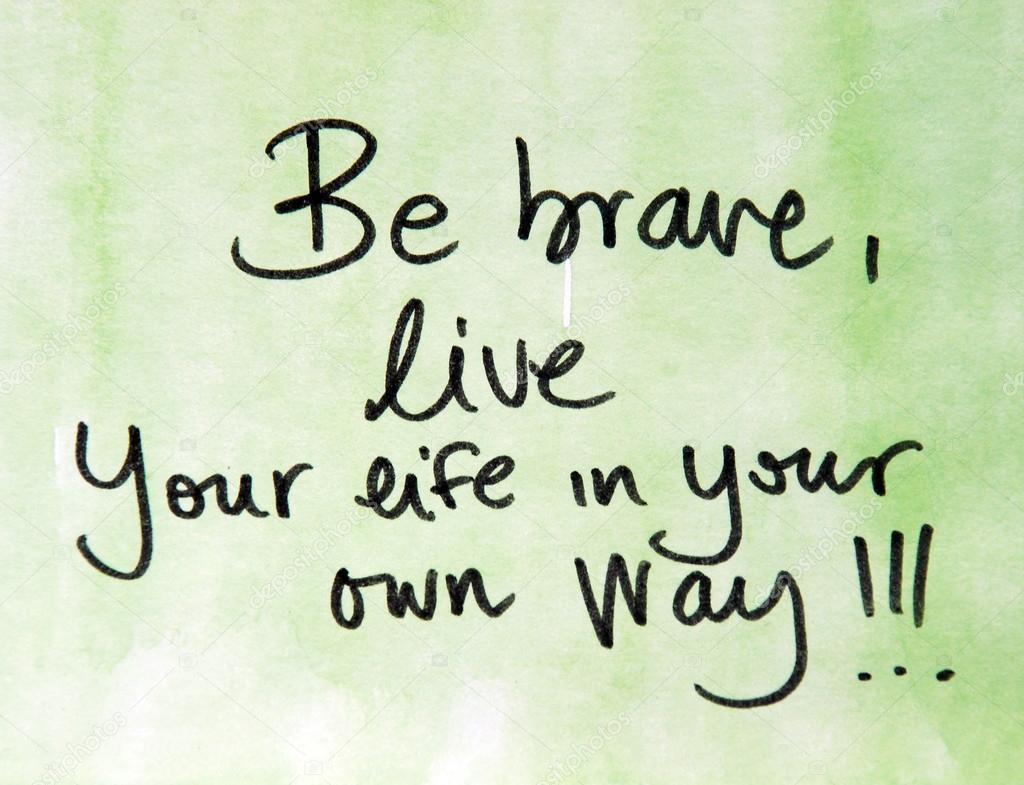 Be brave,
live
Your life in your
own way!!!